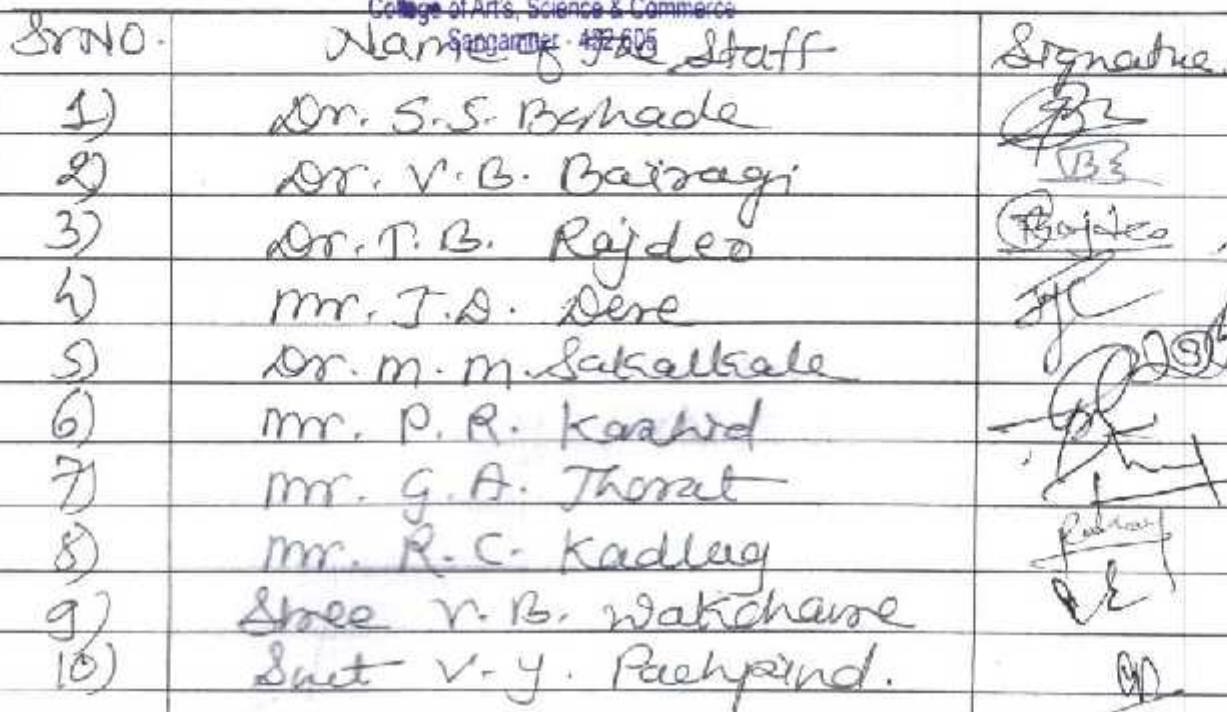 College of Art's, Science & Commerce
Sangamner - 422 605
Sr NO. Name of the Staff Signature.
1) Dr. S.S.
2) Dr. V.B. Bairagi
3) Dr. T.B. Rajdeo Rajdeo
4) Mr. J.D. Dere
5) Dr. M.M. Sakalkale
6) Mr. P.R. Karhid
7) Mr. G.A. Thorat
8) Mr. R.C. Kadlag
9) Shree V.B. Wakchaure
10) Smt V.Y. Pachpind.